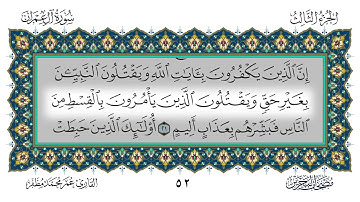 الجزء الثالث
سورة آل عمران
إِنَّ الَّذِينَ يَكْفُرُونَ بِآيَاتِ اللَّهِ وَيَقْتُلُونَ النَّبِيِّينَ
بِغَيْرِ حَقٍّ وَيَقْتُلُونَ الَّذِينَ يَأْمُرُونَ بِالْقِسْطِ مِنَ
النَّاسِ فَبَشِّرْهُم بِعَذَابٍ أَلِيمٍ ٢١ أُولَٰئِكَ الَّذِينَ حَبِطَتْ
القارئ عمر محمد مظفر
٥٢